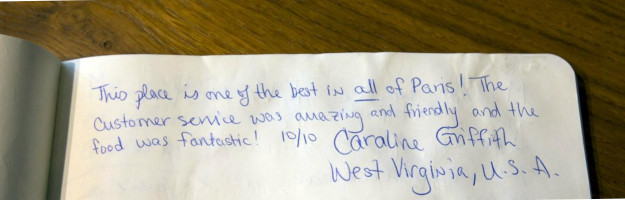 This place is one of the best in all of Paris! The
Customer service was amazing and friendly and the
food was fantastic! 10/10 Caroline Griffith
West Virginia, U.S.A.